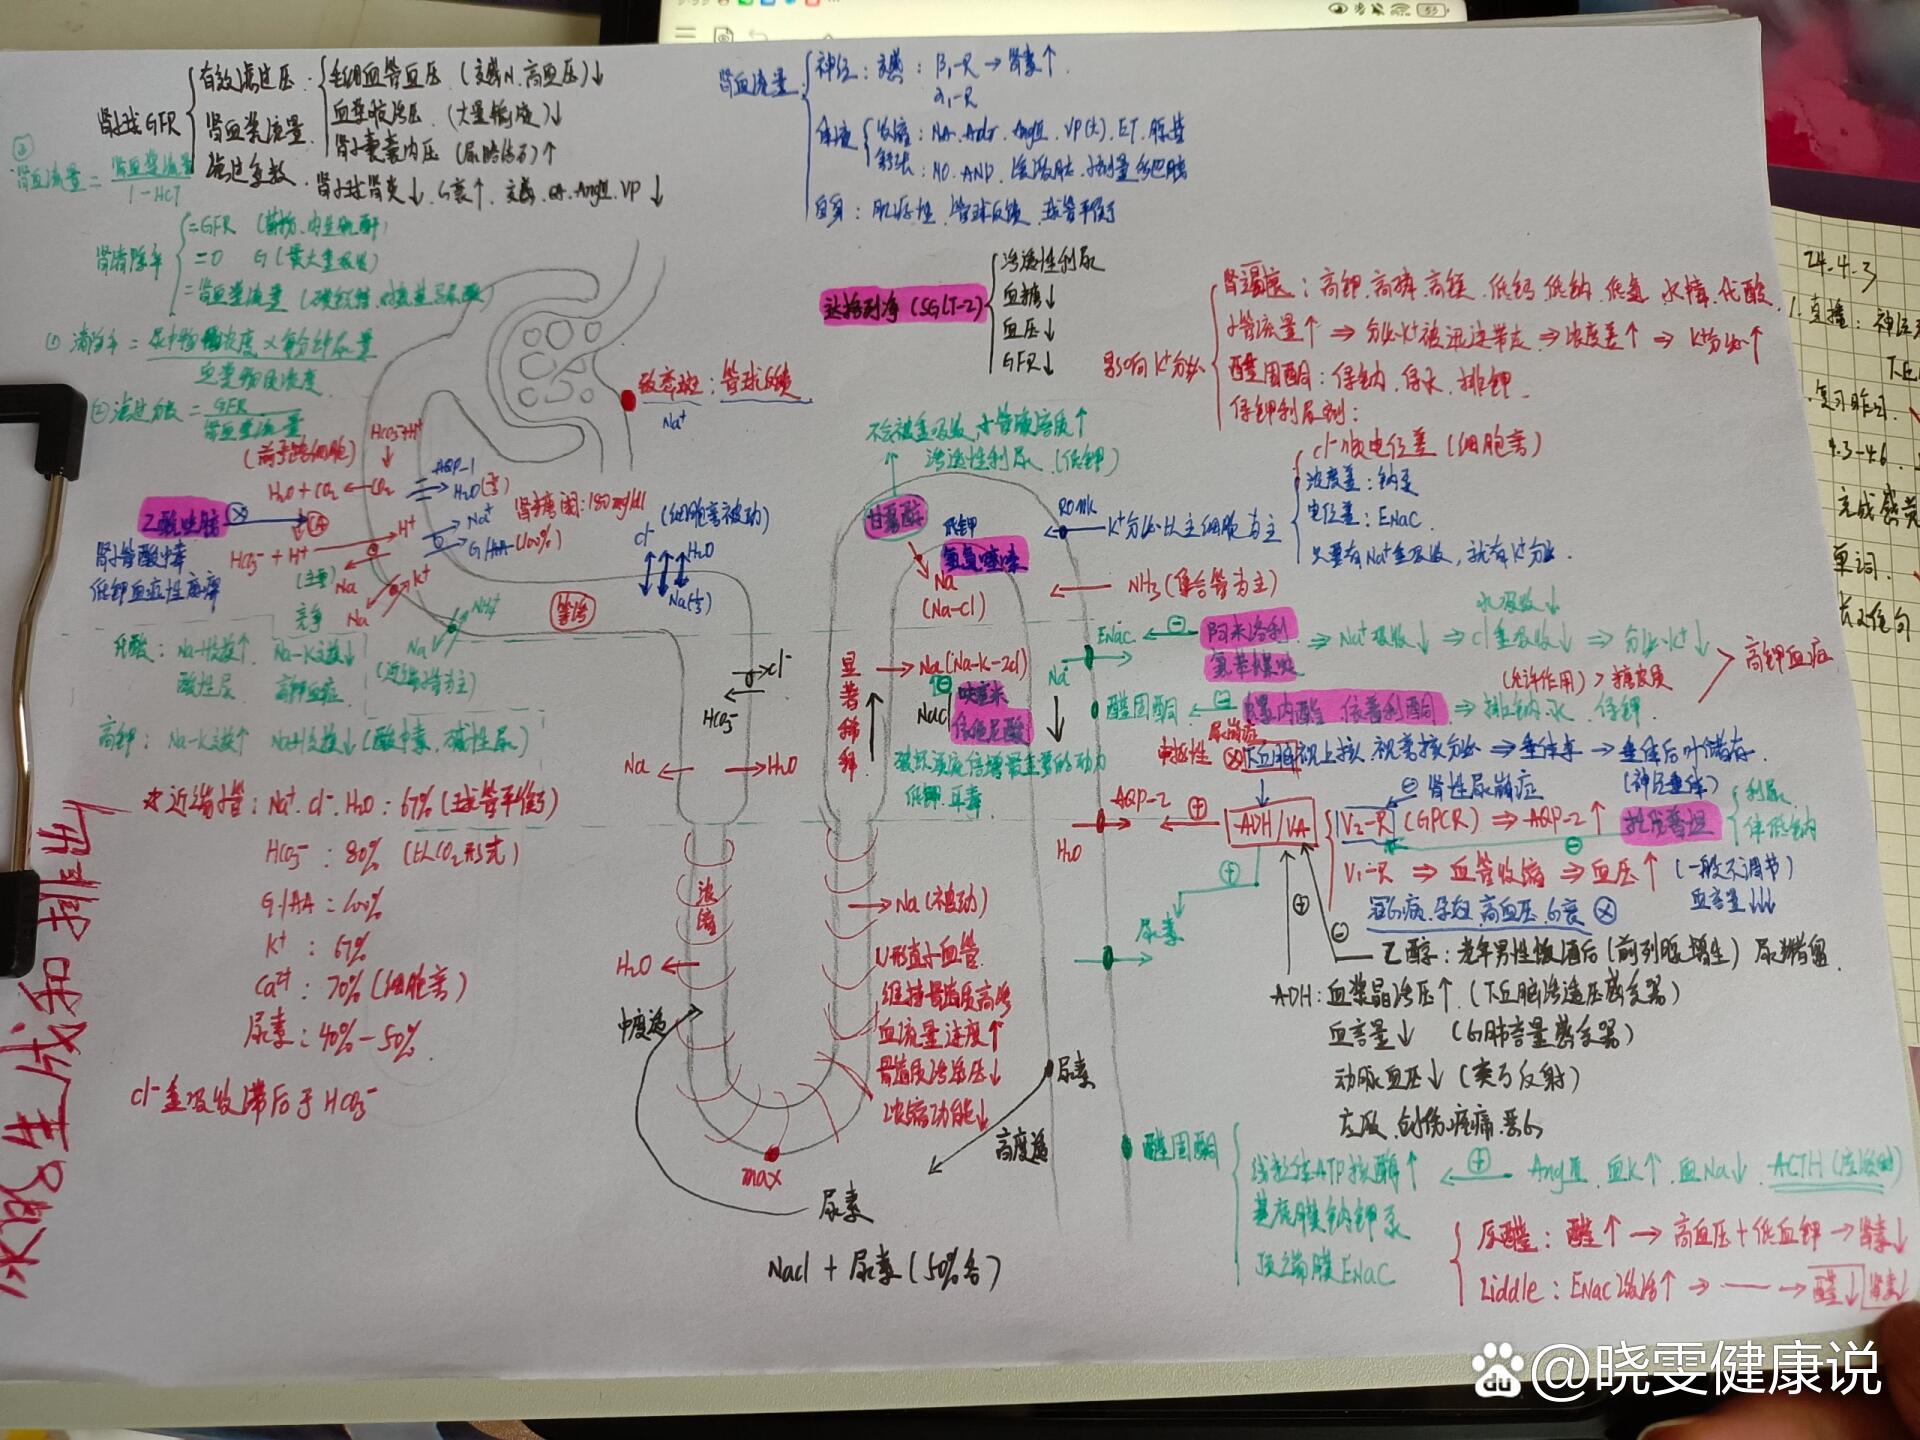 肾小球GFR
有效滤过压：毛细血管血压（交感N.高血压）↓
血浆胶渗压（大量输液）↓
肾小囊囊内压（尿路结石）↑
肾血浆流量
滤过系数
肾血流量 = 肾血浆流量 / 1-HCT
肾清除率
=GFR（菊粉.内生肌酐）
=0 G（最大重吸收）
① 清除率 =
血浆物质浓度
② 滤过分数 = GFR / 肾血浆流量
肾血流量
神经：交感：β₁-R → 肾素↑
α₁-R
体液
收缩：NA.Adr.AngⅡ.VP(大).ET.腺苷
自身：肌源性.管球反馈.球管平衡
达格列净（SGLT-2）
渗透性利尿
血糖↓
血压↓
GFR↓
影响K⁺分泌
肾衰：高钾.高磷.高镁.低钙低钠.低氯 水肿.代酸
小管流量↑ ⇒ 分泌K⁺被迅速带走 ⇒ 浓度差↑ ⇒ K⁺分泌↑
醛固酮：保钠.保水.排钾.
保钾利尿剂：
致密斑：管球反馈
Na⁺
不会被重吸收,小管液溶质↑
渗透性利尿（低钾）
甘露醇
低钾
氢氯噻嗪
Na
(Na-Cl)
ROMK
K⁺分泌以主细胞为主
Cl⁻顺电位差（细胞旁）
浓度差：钠泵
电位差：ENaC.
只要有Na⁺重吸收，就有K⁺分泌.
NH₃（集合管为主）
HCO₃⁻+H⁺
H₂O+CO₂ ← CO₂
乙酰唑胺 ⊗ CA
HCO₃⁻ + H⁺ → H⁺
肾小管酸中毒
AQP-1
H₂O
Na⁺
G/AA(100%)
肾糖阈：180mg/dl
Cl⁻（细胞旁被动）
H₂O
(主要) Na
竞争
Na K⁺
NH₄⁺
Na
等渗
乳酸：Na-H交换↑ Na-K交换↓
酸性尿 高钾血症
高钾：Na-K交换↑ Na-H交换↓（酸中毒、碱性尿）
Cl⁻
HCO₃⁻
Na H₂O
☆近端小管：Na⁺.Cl⁻.H₂O：67%（球管平衡）
HCO₃⁻：80%（以CO₂形式）
G/AA：100%
K⁺：67%
Ca²⁺：70%（细胞旁）
尿素：40%-50%
Cl⁻重吸收滞后于HCO₃⁻
显著稀释
Na(Na-K-2Cl)
NaCl
呋塞米
依他尼酸
破坏浓度倍增最重要的动力
低钾.耳毒
浓缩
H₂O
Na（被动）
U形直小血管
维持髓质高渗
血流量速度↑
髓质渗透压↓
浓缩功能↓
中度通
max
尿素
高度通
尿素
NaCl + 尿素（50%各）
ENaC ⊖ 阿米洛利
氨苯蝶啶
Na⁺
⇒ Na⁺吸收↓ ⇒ Cl重吸收↓ ⇒ 分泌K⁺↓
水吸收↓
高钾血症
醛固酮 ⊖ 螺内酯 依普利酮 ⇒ 排钠.水.保钾.
(允许作用) > 糖皮质
尿崩症
中枢性 ⊗下丘脑视上核.视旁核分泌 ⇒ 垂体束 → 垂体后叶储存.
(神经垂体)
⊖ 肾性尿崩症
AQP-2 ⊕ ADH/VA
H₂O
V₂-R (GPCR) ⇒ AQP-2↑ 托伐普坦
利尿
V₁-R ⇒ 血管收缩 ⇒ 血压↑（一般不调节）
血容量↓↓↓
冠心病.孕妇.高血压.心衰 ⊗
尿素
⊖ 乙醇：老年男性饮酒后（前列腺增生）尿潴留
ADH：血浆晶渗压↑.（下丘脑渗透压感受器）
血容量↓（心肺容量感受器）
动脉血压↓（窦弓反射）
应激.创伤.疼痛.恶心
醛固酮
线粒体ATP合酶↑
基底膜钠钾泵
顶端膜ENaC
⊕ AngⅡ.血K↑.血Na↓.ACTH（应激时）
原醛：醛↑ → 高血压+低血钾 → 肾素↓
Liddle：ENaC激活↑ → —— → 醛↓ 肾素↓
24.4.3
1.直播：神经
复习昨日.
4.3-4.6.
单词.
du @晓雯健康说